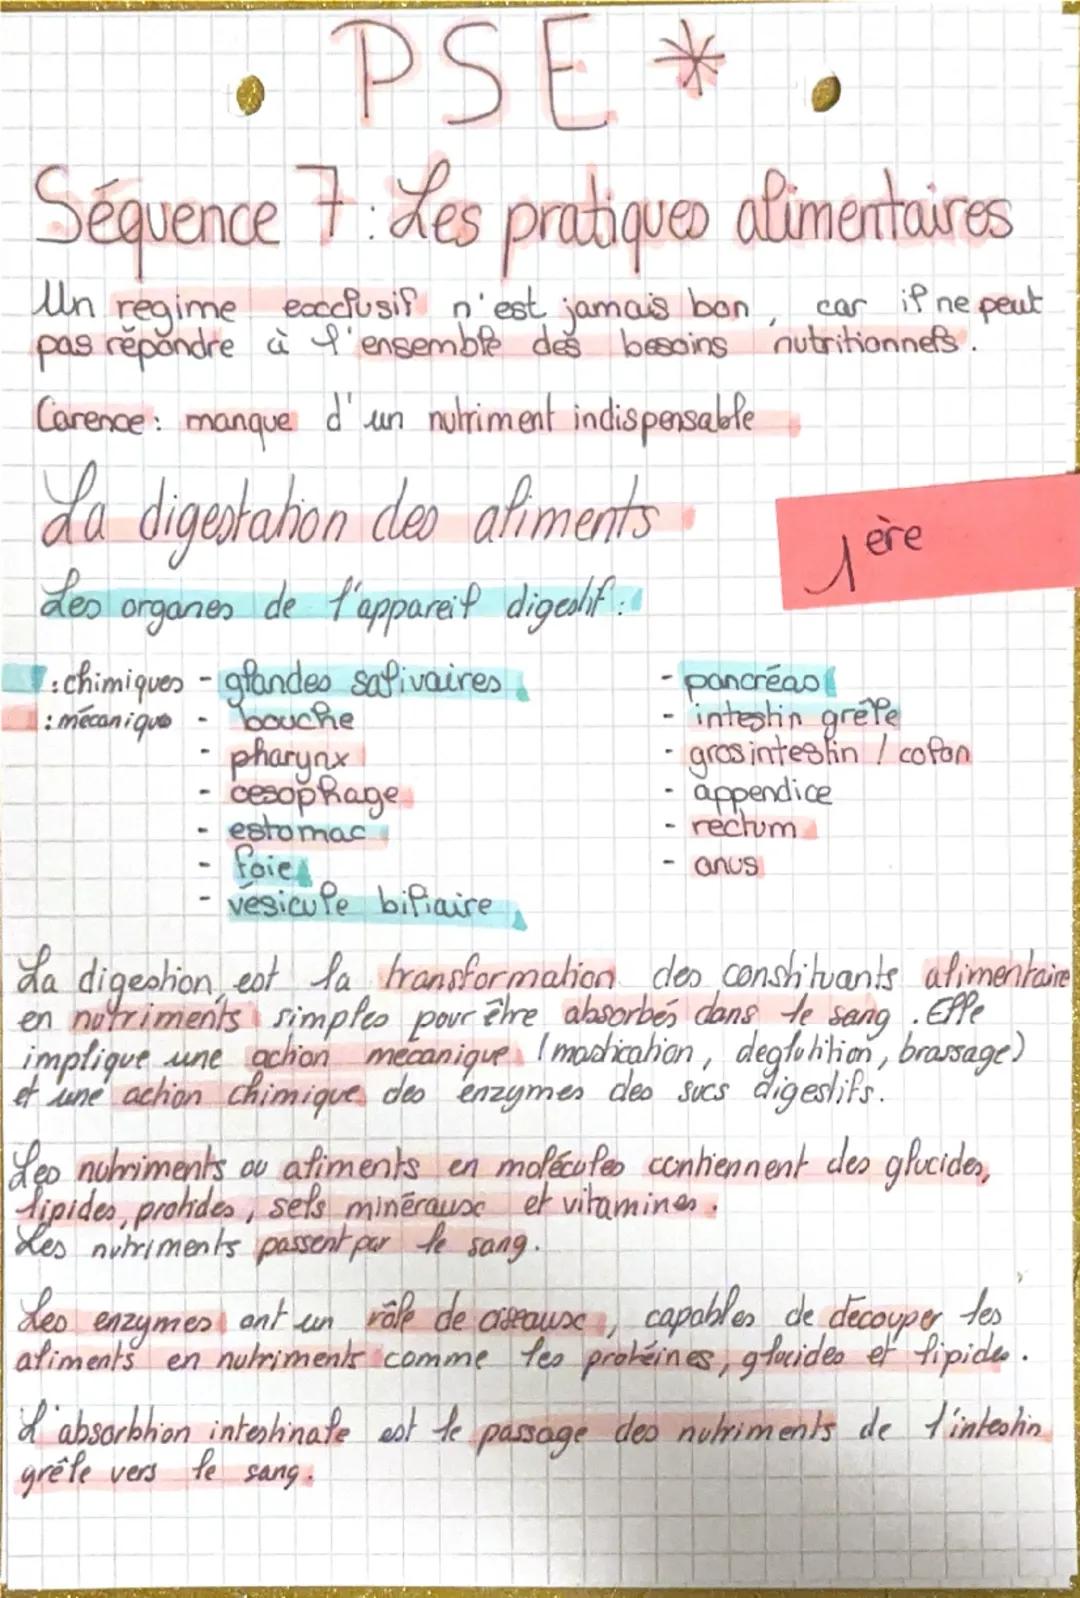 PSE *
Séquence 7 : Les pratiques alimentaires
Un régime excclusif n'est jamais bon, car il ne peut
pas répondre à l'ensemble des besoins nutritionnels.
Carence : manque d'un nutriment indispensable
La digestation des aliments
1ère
Les organes de l'appareil digestif :
: chimiques - glandes salivaires
: mécanique - bouche
- pharynx
- oesophage
- estomac
- foie
- vésicule biliaire
- pancréas
- intestin grêle
- gros intestin / colon
- appendice
- rectum
- anus
La digestion est la transformation des constituants alimentaire
en nutriments simples pour être absorbés dans le sang. Elle
implique une action mécanique (mastication, déglutition, brassage)
et une action chimique des enzymes des sucs digestifs.
Les nutriments ou aliments en molécules contiennent des glucides,
lipides, protides, sels minéraux et vitamines.
Les nutriments passent par le sang.
Les enzymes ont un rôle de ciseaux, capables de découper les
aliments en nutriments comme les protéines, glucides et lipides.
L'absorbtion intestinale est le passage des nutriments de l'intestin
grêle vers le sang.